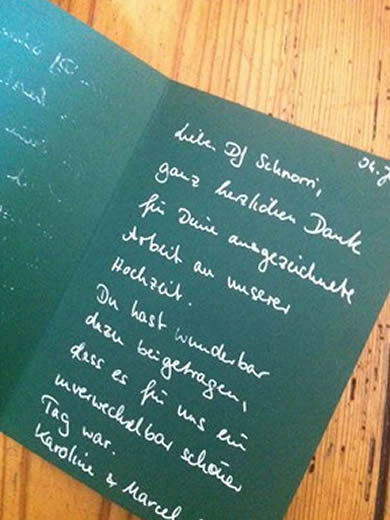 04.
Lieber DJ Schnorri,
ganz herzlichen Dank
für Deine ausgezeichnete
Arbeit an unserer
Hochzeit.
Du hast wunderbar
dazu beigetragen,
dass es für uns ein
unverwechselbar schöner
Tag war.
Karoline & Marcel